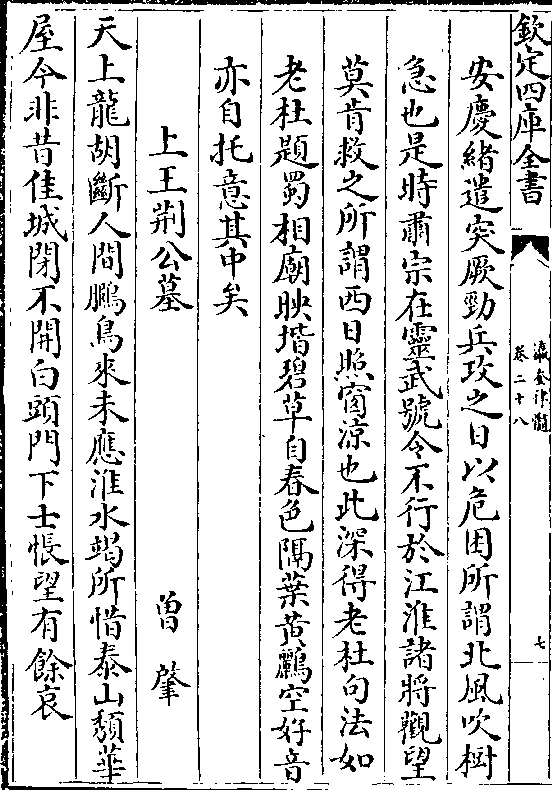 欽定四庫全書
瀛奎律髓
卷二十八
七
安慶緒遣突厥勁兵攻之日以危困所謂北風吹樹
急也是時肅宗在靈武號令不行於江淮諸將觀望
莫肯救之所謂西日照窗涼也此深得老杜句法如
老杜題蜀相廟映堦碧草自春色隔葉黃鸝空好音
亦自托意其中矣
上王荆公墓 曾肇
天上龍胡斷人間鵬鳥來未應淮水竭所惜泰山頹華
屋今非昔佳城閉不開白頭門下士悵望有餘哀